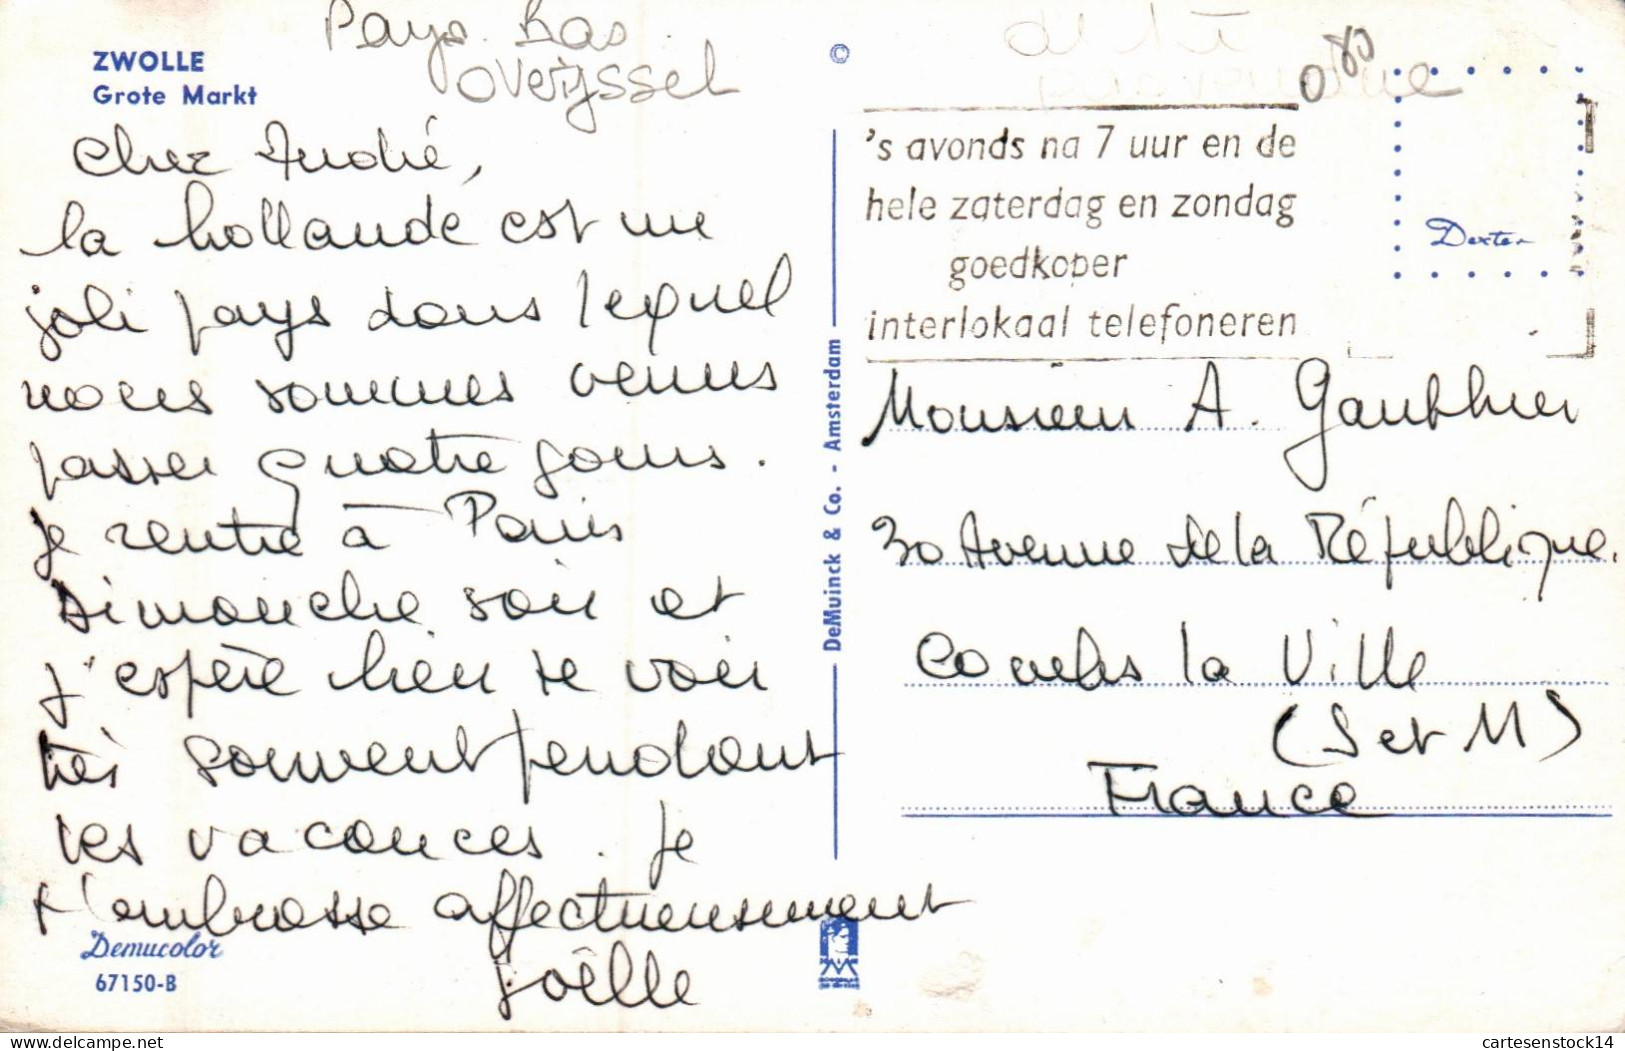 Pays-Bas
Overijssel
ZWOLLE
Grote Markt
Cher André,
la hollande est un
joli pays dans lequel
nous sommes venus
passer quatre jours.
je rentre à Paris
Dimanche soir et
j'espère bien te voir
très souvent pendant
tes vacances. je
t'embrasse affectueusement
joëlle
Demucolor
67150-B
©
DeMuinck & Co. - Amsterdam
0 80
's avonds na 7 uur en de
hele zaterdag en zondag
goedkoper
interlokaal telefoneren
Dexter
Monsieur A. Gauthier
30 Avenue de la République.
Combs la Ville
(S et M)
France
delcampe.net
cartesenstock14